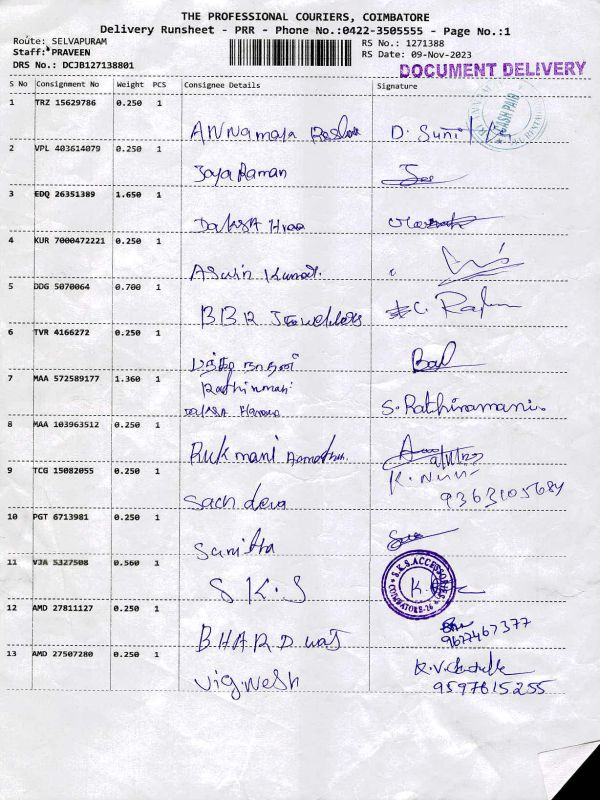 THE PROFESSIONAL COURIERS, COIMBATORE
Delivery Runsheet - PRR - Phone No.:0422-3505555 - Page No.:1
Route: SELVAPURAM
Staff: PRAVEEN
DRS No.: DCJB127138801
RS No.: 1271388
RS Date: 09-Nov-2023
DOCUMENT DELIVERY
S No Consignment No Weight PCS Consignee Details Signature
1 TRZ 15629786 0.250 1
Annamaya D. Sunil
2 VPL 403614079 0.250 1
Jaya Raman
3 EDQ 26351389 1.650 1
4 KUR 7000472221 0.250 1
Aswin Kumar.
5 DDG 5070064 0.700 1
BBR Jewellers
6 TVR 4166272 0.250 1
Bal
7 MAA 572589177 1.360 1
Rathinmani
S. Rathinamani.
8 MAA 103963512 0.250 1
Rukmani
9 TCG 15082055 0.250 1
Sachdeva
9363105684
10 PGT 6713981 0.250 1
Sunitha
11 VJA 5327508 0.560 1
S.K.S
S.K.S.ACCESSORIES
COIMBATORE-26
12 AMD 27811127 0.250 1
BHARDWAJ
9677467377
13 AMD 27507280 0.250 1
Vignesh
9597615255